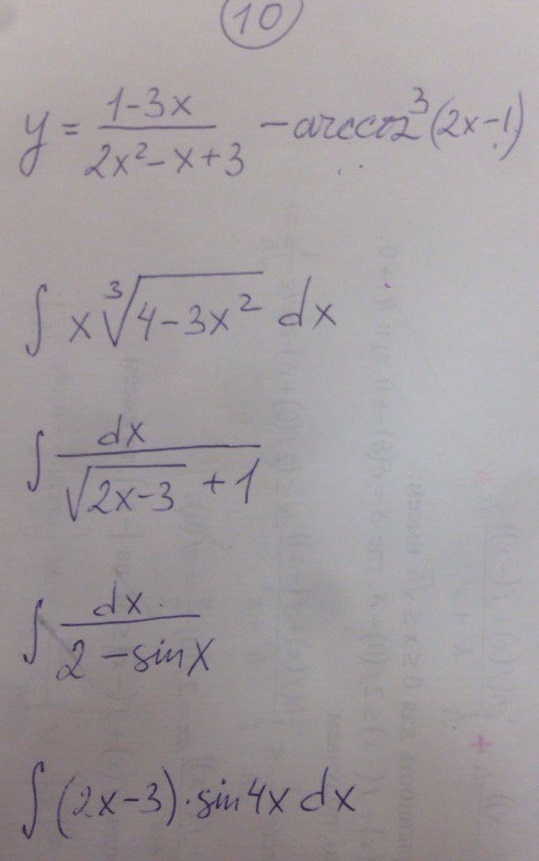 10
y = \frac{1-3x}{2x^2-x+3} - arccos^3(2x-1)
∫ x \sqrt[3]{4-3x^2} dx
∫ \frac{dx}{\sqrt{2x-3}+1}
∫ \frac{dx}{2-sinx}
∫ (2x-3)·sin4x dx